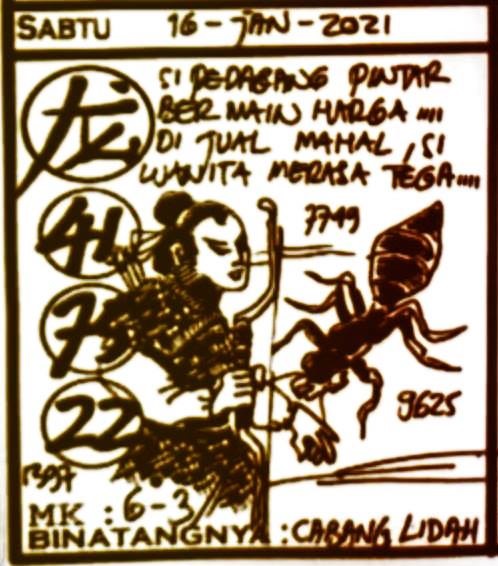 SABTU 16-JAN-2021
SI PEDAGANG PINTAR
BERMAIN HARGA ....
DI JUAL MAHAL, SI
WANITA MERASA TEGA....
龙
41
7749
75
22
9625
MK : 6-3
BINATANGNYA : CABANG LIDAH